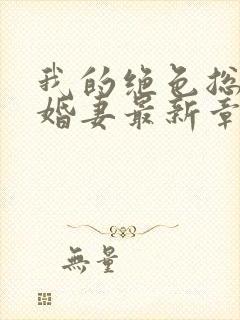 我的绝色总
婚妻最新章
無量